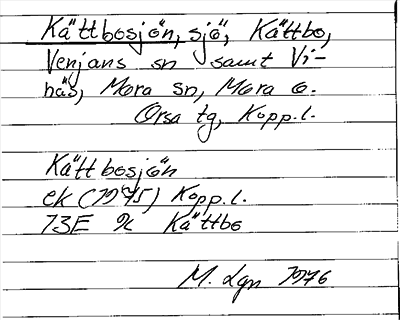 Kättbosjön, sjö, Kättbo,
Venjans sn samt Vi-
näs, Mora sn, Mora o.
Orsa tg, Kopp.l.
Kättbosjön
ek (1975) Kopp.l.
13E Kättbo
M. Lgn 1976